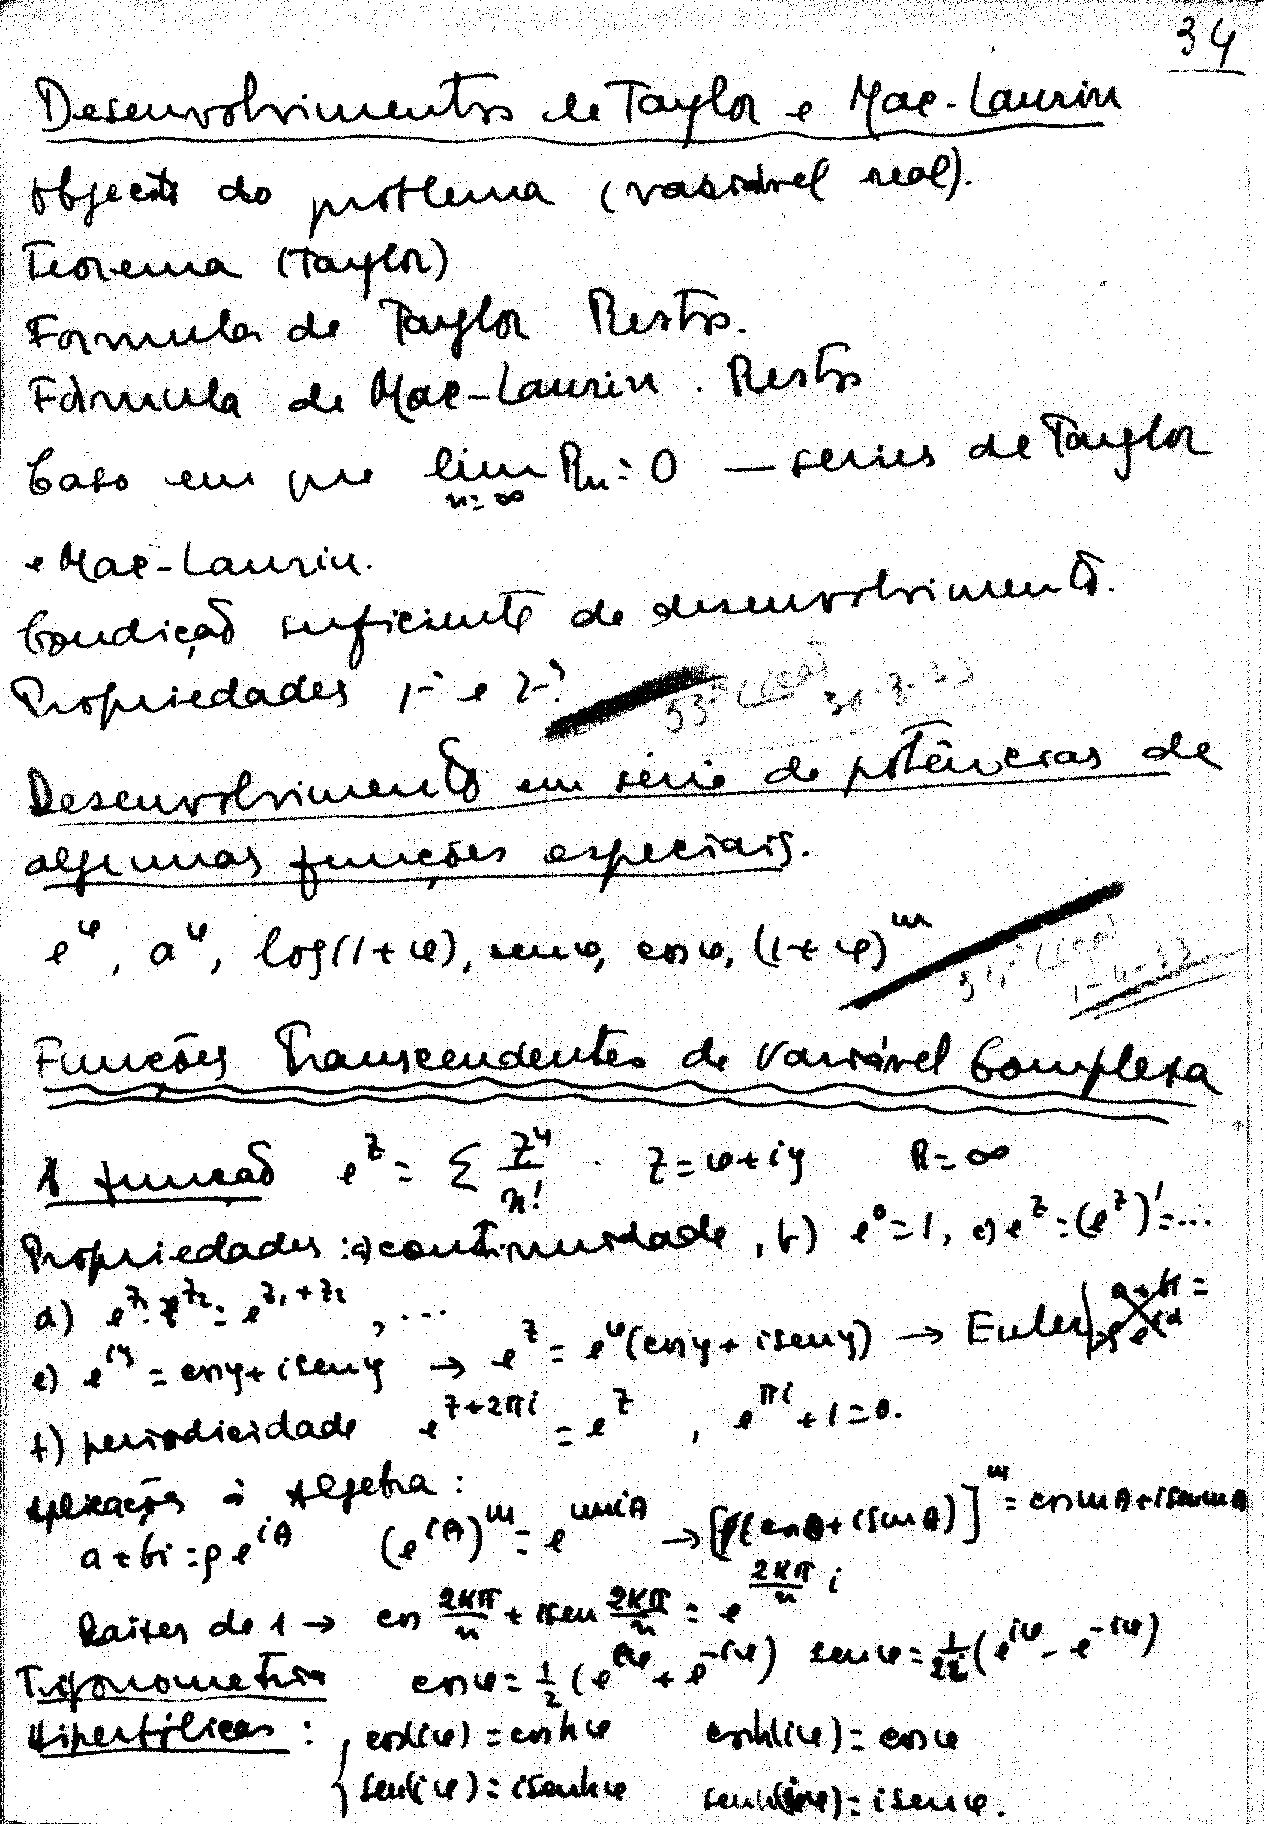 34
Desenvolvimentos de Taylor e Mac-Laurin
Objecto do problema (variável real).
Teorema (Taylor)
Formula de Taylor Restos.
Fórmula de Mac-Laurin. Restos
Caso em que lim Rn = 0 — series de Taylor
n=∞
e Mac-Laurin.
Condição suficiente de desenvolvimento.
Propriedades 1ª e 2ª
Desenvolvimento em série de potências de
algumas funções especiais.
e^x, a^x, log(1+x), sen x, cos x, (1+x)^m
Funções Transcendentes de Variável Complexa
A função e^z = Σ z^n/n! . z = x+iy R=∞
Propriedades: a) continuidade, b) e^0=1, c) e^z=(e^z)'=...
d) e^z1 . e^z2 = e^z1+z2, ...
e) e^iy = cos y + i sen y → e^z = e^x (cos y + i sen y) → Euler
f) periodicidade e^z+2πi = e^z, e^πi + 1 = 0.
Aplicações à Algebra:
a+bi = ρe^iθ (e^iθ)^m = e^miθ → [(cos θ + i sen θ)]^m = cos mθ + i sen mθ
Raizes de 1 → cos 2kπ/n + i sen 2kπ/n = e^(2kπ/n) i
Trigonometria cos x = 1/2 (e^ix + e^-ix) sen x = 1/2i (e^ix - e^-ix)
Hiperbólicas: cos(ix) = cosh x cosh(ix) = cos x
sen(ix) = i senh x senh(ix) = i sen x.